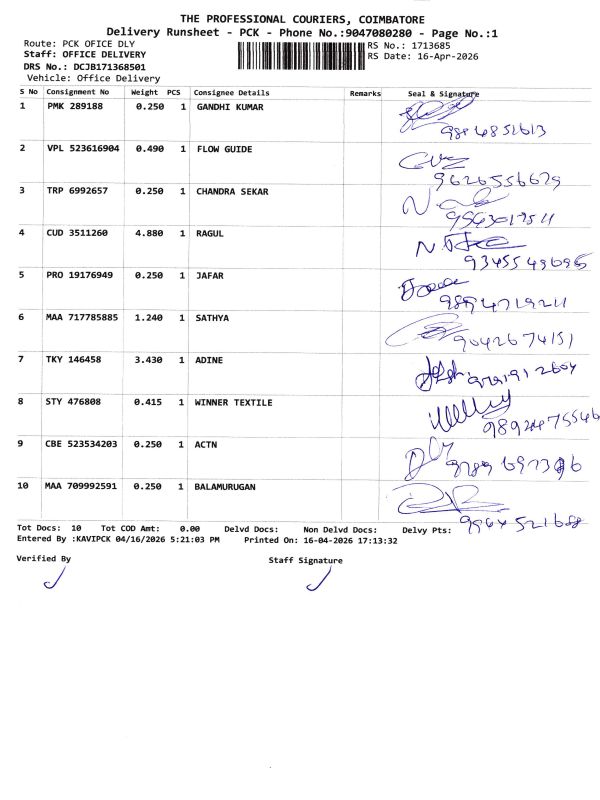 THE PROFESSIONAL COURIERS, COIMBATORE
Delivery Runsheet - PCK - Phone No.:9047080280 - Page No.:1
Route: PCK OFICE DLY
RS No.: 1713685
Staff: OFFICE DELIVERY
RS Date: 16-Apr-2026
DRS No.: DCJB171368501
Vehicle: Office Delivery
S No Consignment No Weight PCS Consignee Details Remarks Seal & Signature
1 PMK 289188 0.250 1 GANDHI KUMAR
2 VPL 523616904 0.490 1 FLOW GUIDE
9626556679
3 TRP 6992657 0.250 1 CHANDRA SEKAR
4 CUD 3511260 4.880 1 RAGUL
5 PRO 19176949 0.250 1 JAFAR
6 MAA 717785885 1.240 1 SATHYA
9042674151
7 TKY 146458 3.430 1 ADINE
8 STY 476808 0.415 1 WINNER TEXTILE
9 CBE 523534203 0.250 1 ACTN
10 MAA 709992591 0.250 1 BALAMURUGAN
Tot Docs: 10 Tot COD Amt: 0.00 Delvd Docs: Non Delvd Docs: Delvy Pts:
Entered By :KAVIPCK 04/16/2026 5:21:03 PM Printed On: 16-04-2026 17:13:32
Verified By Staff Signature